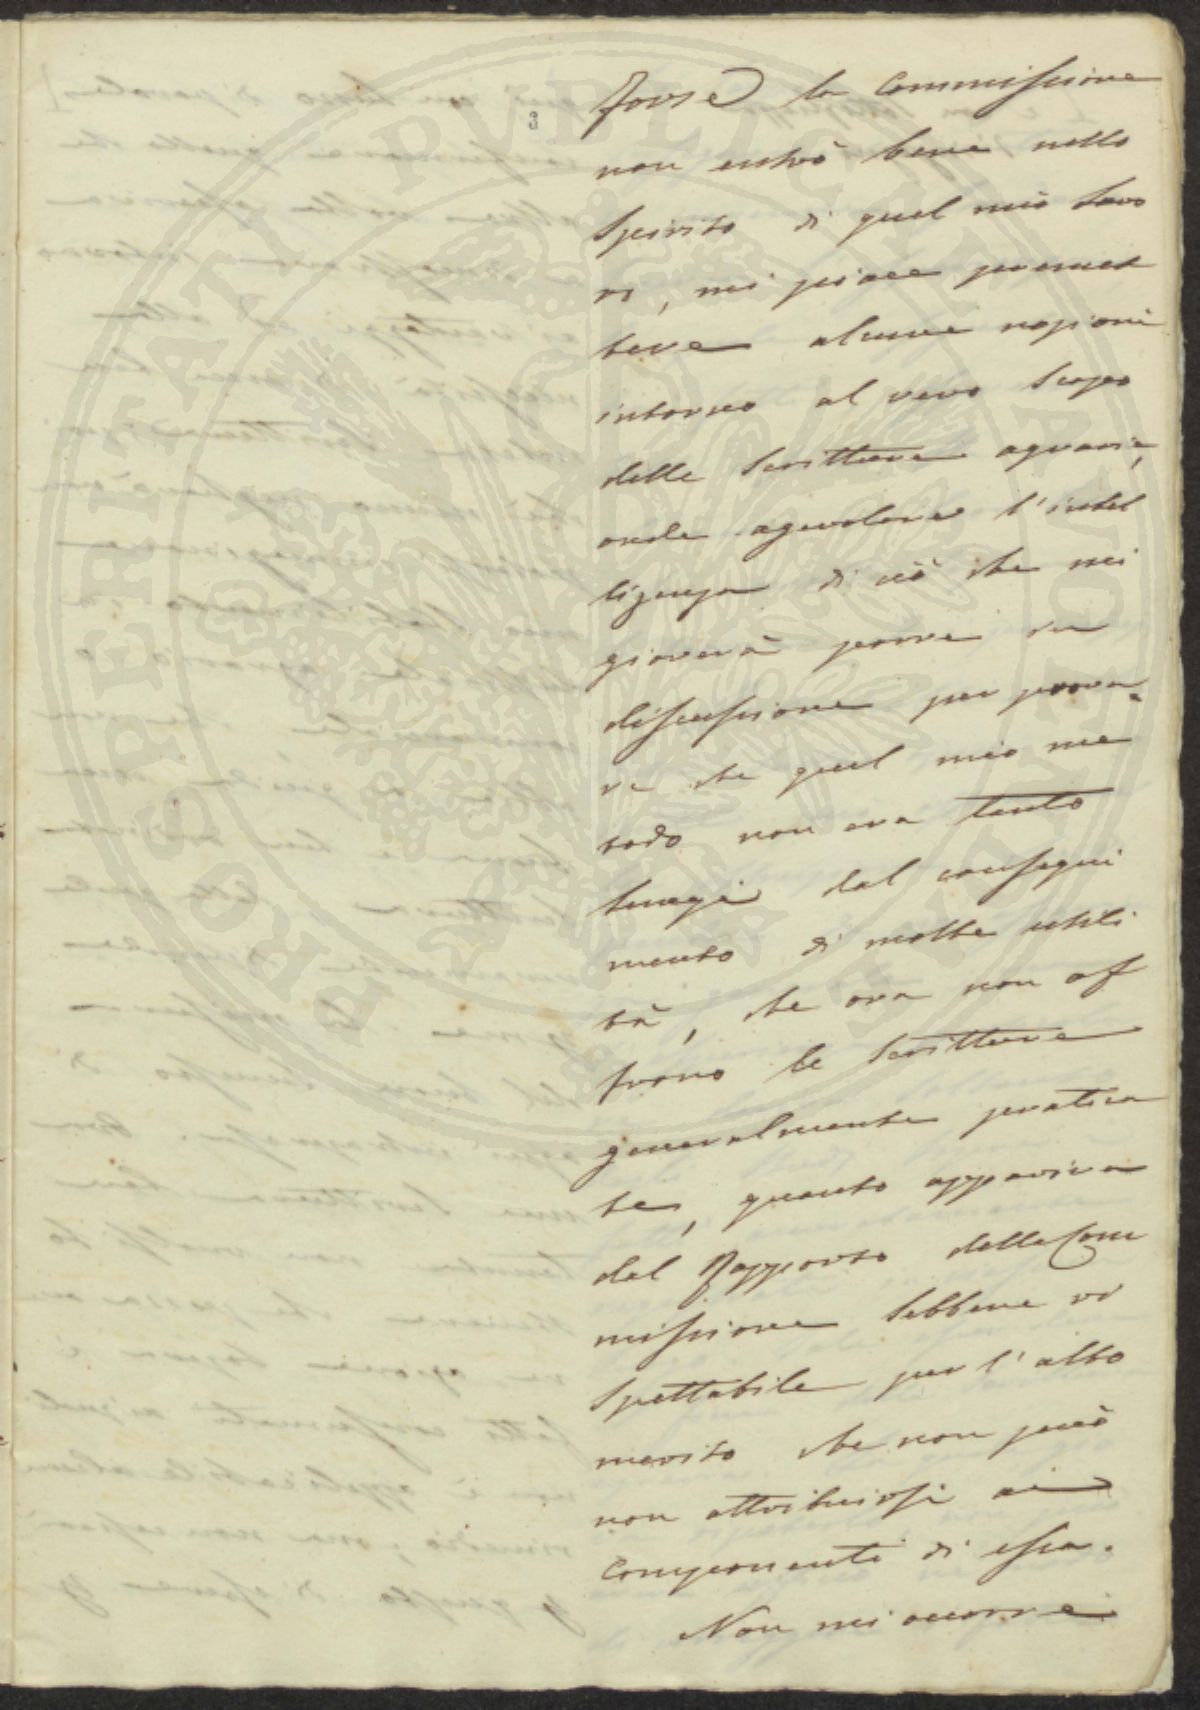 3
forse la Commissione
non entrò bene nello
Spirito di quel mio lavo
ro, mi piace premet
tere alcune nozioni
intorno al vero Scopo
delle Scritture agrarie,
onde agevolare l'intel
ligenza di ciò che mi
gioverà porre in
discussione per prova-
re che quel mio me
todo non era tanto
lungi dal consegui
mento di molte utili
tà, che ora non of
frono le Scritture
generalmente pratica
te, quanto appariva
dal Rapporto della Com
missione Sebbene ri
Spettabile per l'alto
merito che non può
non attribuirsi ai
Componenti di essa.
Non mi occorre
PROSPERITATI PVBLICAE AVGENDAE